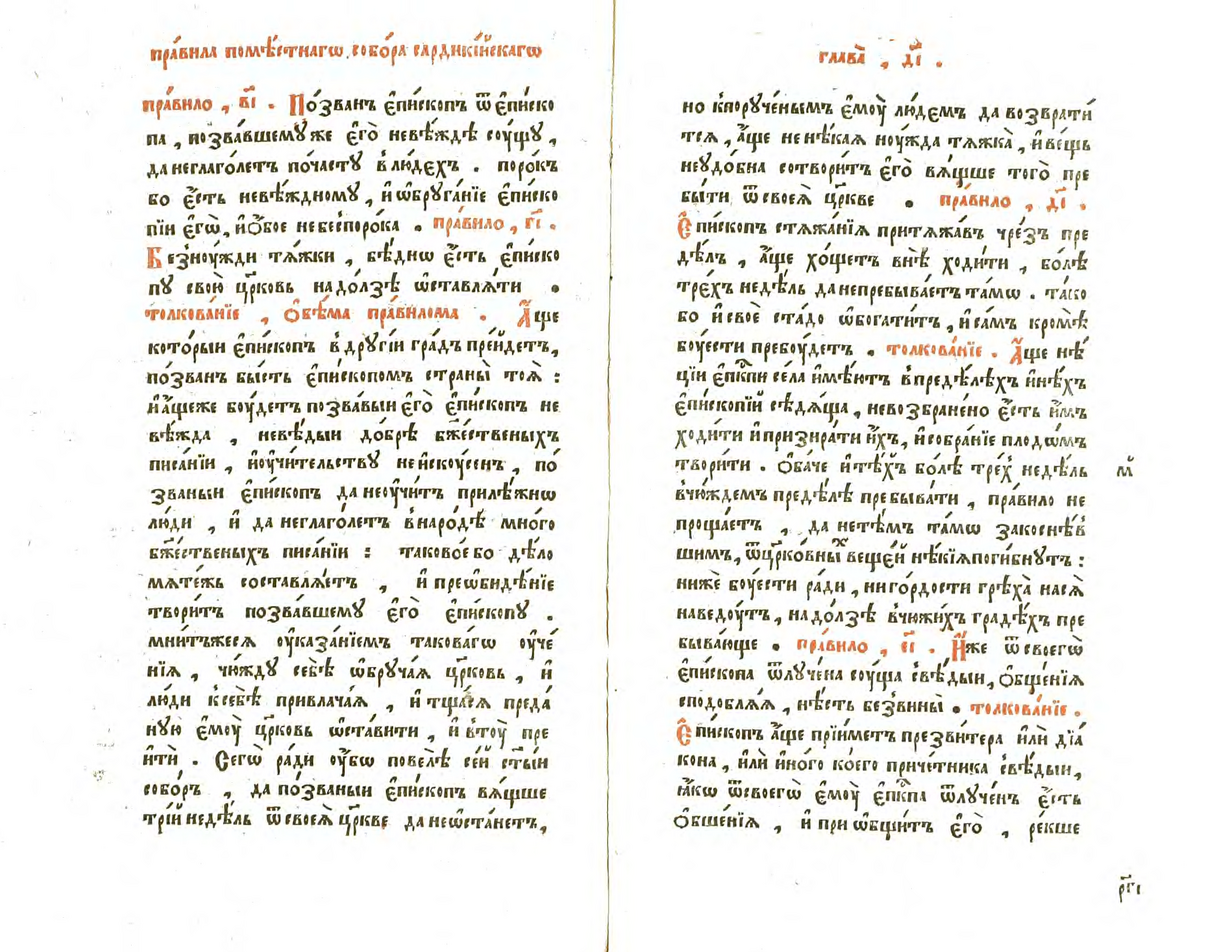 пра́вила помѣ́стнагѡ собо́ра сардикі́йскагѡ
пра́вило , в҃і . По́званъ є҆пи́скопъ ѿ є҆пи́ско
па , позва́вшемꙋже є҆го̀ невѣ́ждѣ сꙋ́щꙋ ,
данеглаго́летъ по́частꙋ влю́дєхъ . поро́къ
бо є҆́сть невѣ́ждномꙋ , и҆ ѡ҆брꙋга́нїе є҆пи́ско
пїи є҆гѡ̀ , и҆ ѻ҆бое небеспоро́ка . пра́вило , г҃і .
Безнꙋ́жди тѧ́жки , бѣ́днѡ є҆́сть є҆пи́ско
пꙋ свою̀ цр҃ковь надо́лзѣ ѡ҆ставлѧ́ти .
толкова́нїе , ѻ҆бѣ́ма пра́вилома . А҆́ще
которыи є҆пи́скопъ вдрꙋгі́и гра́дъ прїи́детъ ,
по́званъ бы́сть є҆пи́скопомъ страны̀ тоѧ̀ :
и҆ а҆́щеже бꙋ́детъ позва́выи є҆го̀ є҆пи́скопъ не
вѣ́жда , невѣ́дыи до́брѣ бж҃ественыхъ
писа́нїи , и҆ ᲂу҆чи́тельствꙋ неискꙋ́сенъ , по́
званыи є҆пи́скопъ да неᲂу҆чи́тъ прилѣ́жнѡ
лю́ди , и҆ да неглаго́летъ внаро́дѣ мно́го
бж҃е́ственыхъ писа́нїи : таково́е бо дѣ́ло
мѧте́жь составлѧ́етъ , и҆ преѡ҆бидѣ́нїе
твори́тъ позва́вшемꙋ є҆го̀ є҆пи́скопꙋ .
мни́тъжесѧ ᲂу҆каза́нїемъ такова́гѡ ᲂу҆че́
нїѧ , чю́ждꙋ себѣ̀ ѡ҆брꙋча́ѧ цр҃ковь , и҆
лю́ди ксебѣ̀ привлача́ѧ , и҆ тща́сѧ преда́
нꙋю є҆мꙋ̀ цр҃ковь ѡ҆ста́вити , и҆ втꙋ̀ пре
и҆ти́ . Сегѡ̀ ра́ди ᲂу҆́бѡ повелѣ̀ се́и ст҃ы́и
собо́ръ , да по́званыи є҆пи́скопъ вѧ́щше
трїи́ недѣ́ль ѿ своеѧ̀ цр҃кве да неѡ҆ста́нетъ ,
глава̀ , д҃і .
но кпорꙋ́ченымъ є҆мꙋ̀ лю́демъ да возврати́
тсѧ , а҆́ще не нѣ́каѧ нꙋ́жда тѧжка̀ , и҆ ве́щь
неᲂудо́бна сотвори́тъ є҆го̀ вѧ́щше того̀ пре
бы́ти ѿ своеѧ̀ цр҃кве . пра́вило , д҃і .
Є҆пи́скопъ стѧжа́нїѧ притѧжа́въ чре́зъ пре
дѣ́лъ , а҆́ще хо́щетъ внѣ̀ ходи́ти , бо́лѣ
тре́хъ недѣ́ль данепребыва́етъ та́мѡ . та́ко
бо и҆ своѐ ста́до ѡ҆богати́тъ , и҆ са́мъ кромѣ̀
бꙋ́ести пребꙋ́детъ . толкова́нїе . А҆́ще нѣ́
цїи є҆пк҃пи се́ла и҆мѣ́ютъ впредѣ́лѣхъ и҆нѣ́хъ
є҆писко́пїй сѣдѧ́ща , невозбране́но є҆́сть и҆̀мъ
ходи́ти и҆ призира́ти и҆́хъ , и҆ собра́нїе плодѡ́мъ
твори́ти . ѻ҆ба́че и҆ тѣ́хъ бо́лѣ тре́х недѣ́ль
вчю́ждемъ предѣ́лѣ пребыва́ти , пра́вило не
проща́етъ , да нетѣ́мъ та́мѡ закоснѣ́в
шимъ , ѿ цр҃ко́вныхъ веще́й нѣ́кїѧ поги́бнꙋтъ :
нижѐ бꙋ́ести ра́ди , ниго́рдости грѣха̀ насѧ̀
наведꙋ́тъ , надо́лзѣ вчюжи́хъ градѣ́хъ пре
быва́юще . пра́вило , є҃і . И҆́же ѿ своегѡ̀
є҆пи́скопа ѿлꙋче́на сꙋ́ща свѣ́дыи , ѻ҆бще́нїѧ
сподоблѧ́ѧ , нѣ́сть безвины̀ . толкова́нїе .
Є҆пи́скопъ а҆́ще прїи́метъ презви́тера и҆лѝ дїа́
кона , и҆лѝ и҆но́го ко́его приче́тника свѣ́дыи ,
ꙗ҆́кѡ ѿ своегѡ̀ є҆мꙋ̀ є҆пк҃па ѿлꙋче́нъ є҆́сть
ѻ҆бще́нїѧ , и҆ при ѡ҆бщи́тъ є҆го̀ , ре́кше
м҃
рг҃і